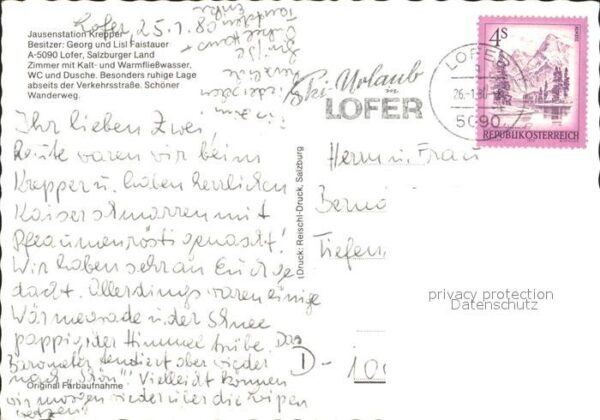 Lofer, 25.1.80
Jausenstation Krepper
Besitzer: Georg und Lisl Faistauer
A-5090 Lofer, Salzburger Land
Zimmer mit Kalt- und Warmfließwasser,
WC und Dusche. Besonders ruhige Lage
abseits der Verkehrsstraße. Schöner
Wanderweg.
Ihr lieben Zwei,
Heute waren wir beim
Krepper u. haben herrlichen
Kaiserschmarren mit
Pflaumenrösti genascht!
Wir haben sehr an Euch ge
dacht. Allerdings waren einige
Wärmegrade u. der Schnee
pappig, der Himmel trübe. Das
Barometer tendiert aber wieder
nach "schön"! Vielleicht können
wir morgen wieder über die
Original Farbaufnahme
(Druck: Reischl-Druck, Salzburg
Ski-Urlaub
in
LOFER
LOFER
26.-1.80
5090
4S
REPUBLIK ÖSTERREICH
Herrn u. Frau
Tiefen
D-100
privacy protection
Datenschutz